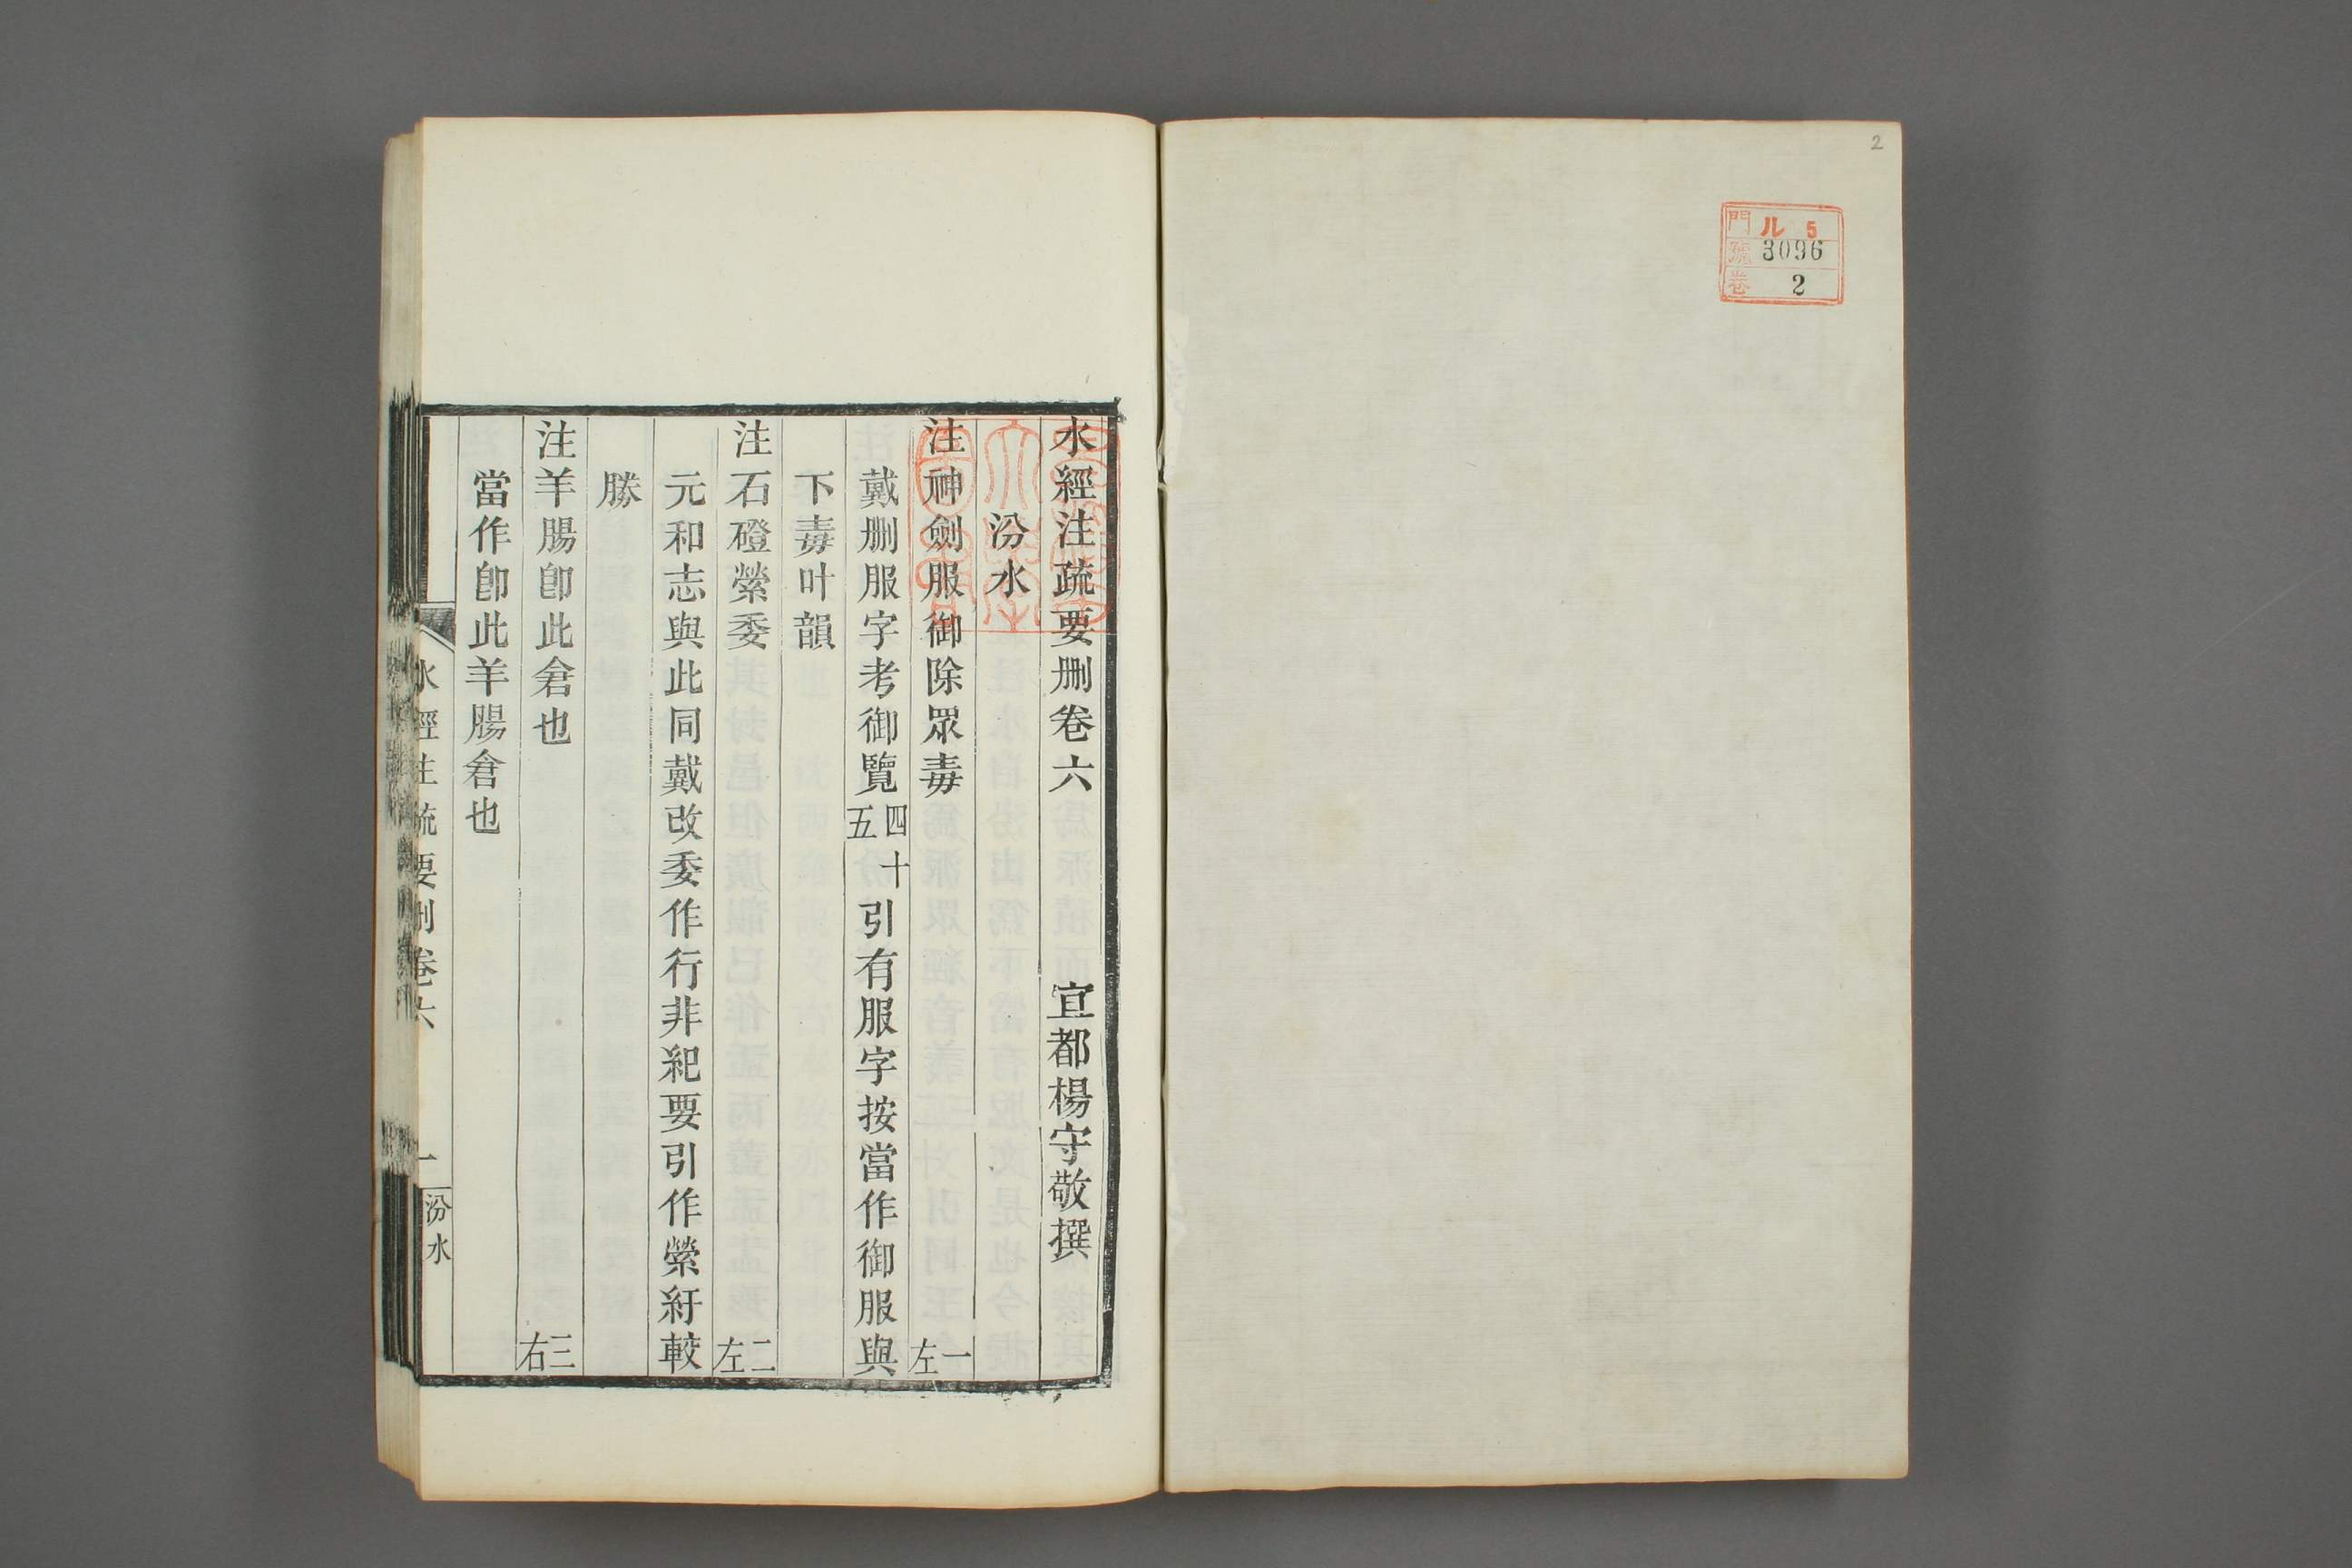 2
門 ル 5
號 3096
卷 2
水經注疏要删卷六　宜都楊守敬撰
汾水
注神劍服御除眾毒　一左
戴删服字考御覽四十五引有服字按當作御服與
下毒叶韻
注石磴縈委　二左
元和志與此同戴改委作行非祀要引作縈紆較
勝
注羊腸卽此倉也　三右
當作卽此羊腸倉也
水經注疏要删卷六　一　汾水